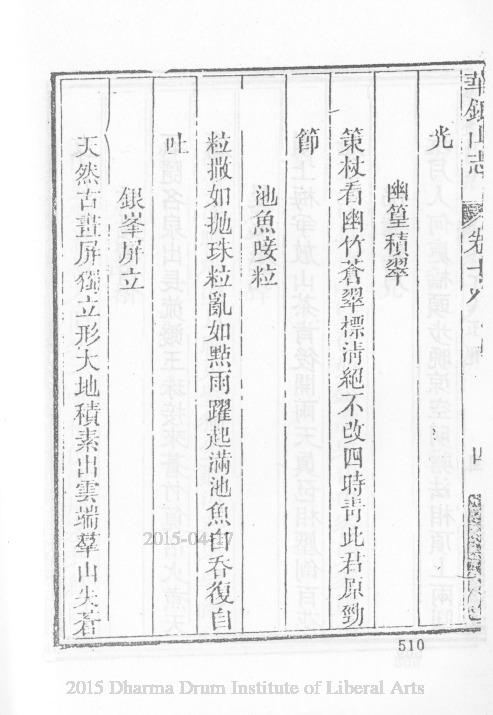 華銀山志
卷十八
四
光
幽篁積翠
策杖看幽竹蒼翠標清絕不改四時靑此君原勁
節
池魚唼粒
粒撒如拋珠粒亂如點雨躍起滿池魚自吞復自
吐
銀峯屏立
天然古畫屏獨立形大地積素出雲端羣山失蒼
2015-04-17
510
2015 Dharma Drum Institute of Liberal Arts